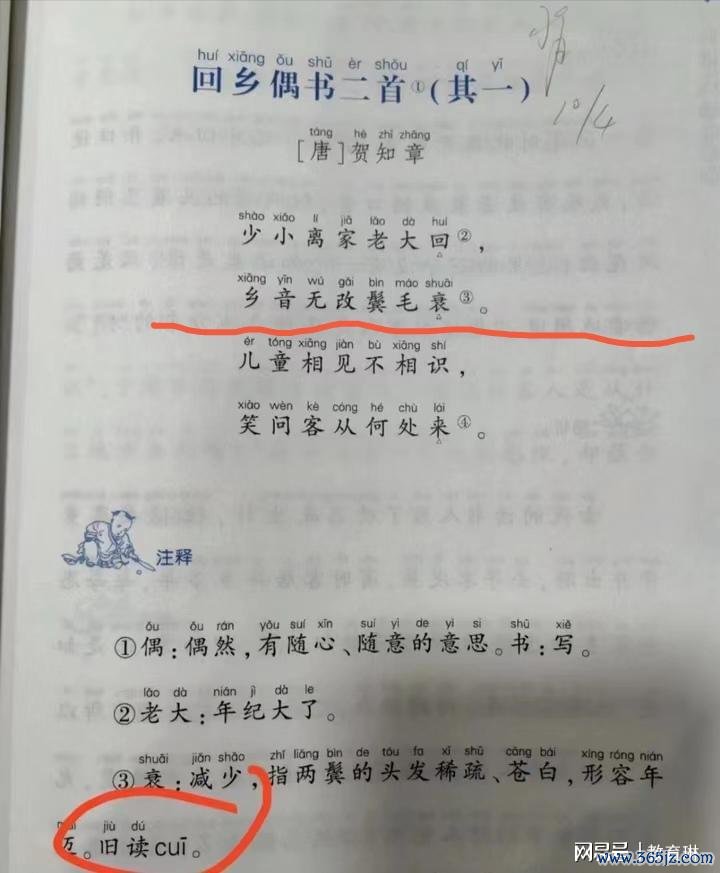 huí xiāng ǒu shū èr shǒu qí yī
回乡偶书二首①(其一)
10/4
táng hè zhī zhāng
[唐]贺知章
shào xiǎo lí jiā lǎo dà huí
少小离家老大回②，
xiāng yīn wú gǎi bìn máo shuāi
乡音无改鬓毛衰③。
ér tóng xiāng jiàn bù xiāng shí
儿童相见不相识，
xiào wèn kè cóng hé chù lái
笑问客从何处来④。
注释
ǒu ǒu rán yǒu suí xīn suí yì de yì si shū xiě
①偶：偶然，有随心、随意的意思。书：写。
lǎo dà nián jì dà le
②老大：年纪大了。
shuāi jiǎn shǎo zhǐ liǎng bìn de tóu fa xī shū cāng bái xíng róng nián
③衰：减少，指两鬓的头发稀疏、苍白，形容年
jiù dú
迈。旧读cuī。
网易号 | 教育琳
www.365jz.com